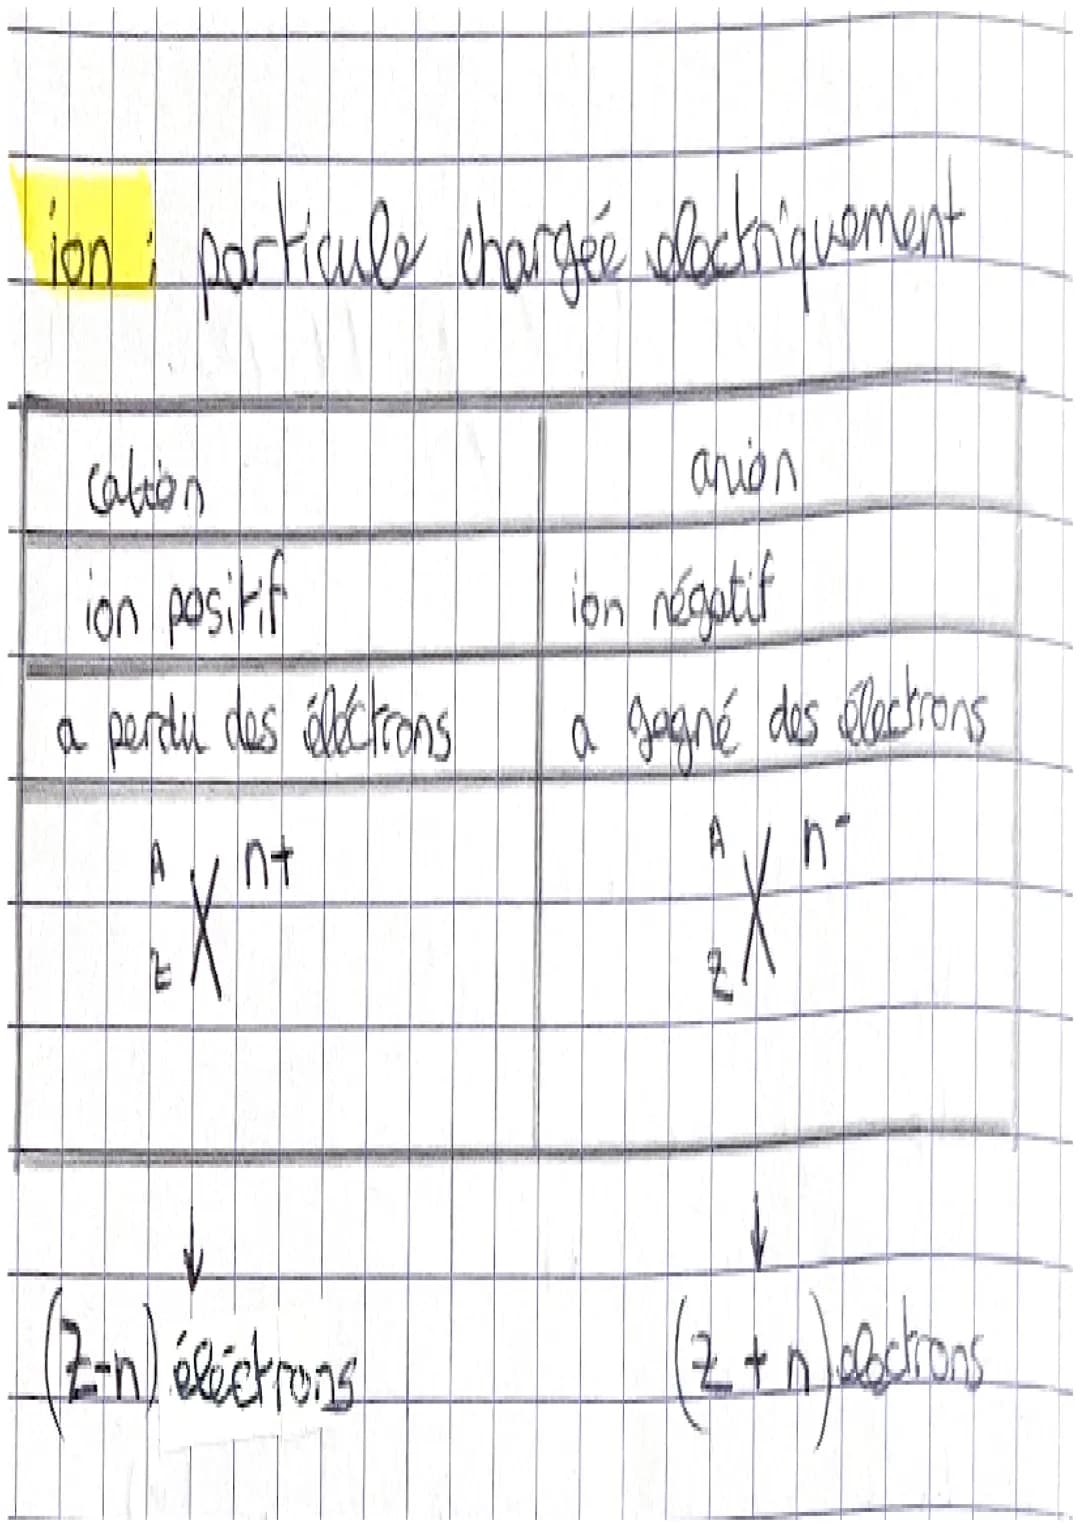 ion : particule chargée electriquement
cation anion
ion positif ion négatif
a perdu des éléctrons a gagné des électrons
A X n+ A X n-
Z Z
(Z-n) éléctrons (Z + n) electrons